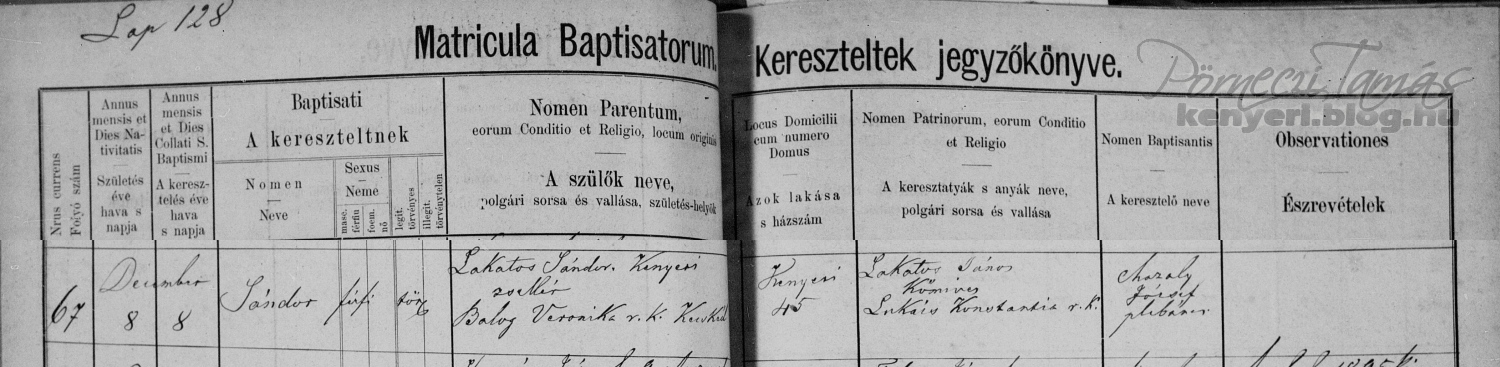 Lap 128.
Matricula Baptisatorum. Kereszteltek jegyzőkönyve.
Pörneczi Tamás
kenyeri.blog.hu
Nrus currens
Folyó szám
Annus
mensis et
Dies Na-
tivitatis
Születés
éve
hava s
napja
Annus
mensis
et Dies
Collati S.
Baptismi
A keresz-
telés éve
hava
s napja
Baptisati
A kereszteltnek
Nomen
Neve
Sexus
Neme
masc.
férfiu
foem.
nő
legit.
törvényes
illegit.
törvénytelen
Nomen Parentum,
eorum Conditio et Religio, locum originis
A szülők neve,
polgári sorsa és vallása, születés-helyök
Locus Domicilii
cum numero
Domus
Azok lakása
s házszám
Nomen Patrinorum, eorum Conditio
et Religio
A keresztatyák s anyák neve,
polgári sorsa és vallása
Nomen Baptisantis
A keresztelő neve
Observationes
Észrevételek
67
December
8
8
Sándor
férfi
törv
Lakatos Sándor. Kenyeri
zsellér
Balog Veronika r. k.
Kenyeri
45
Lakatos János
Kőmives
Lukáis Konstantia r. k.
József
plébános